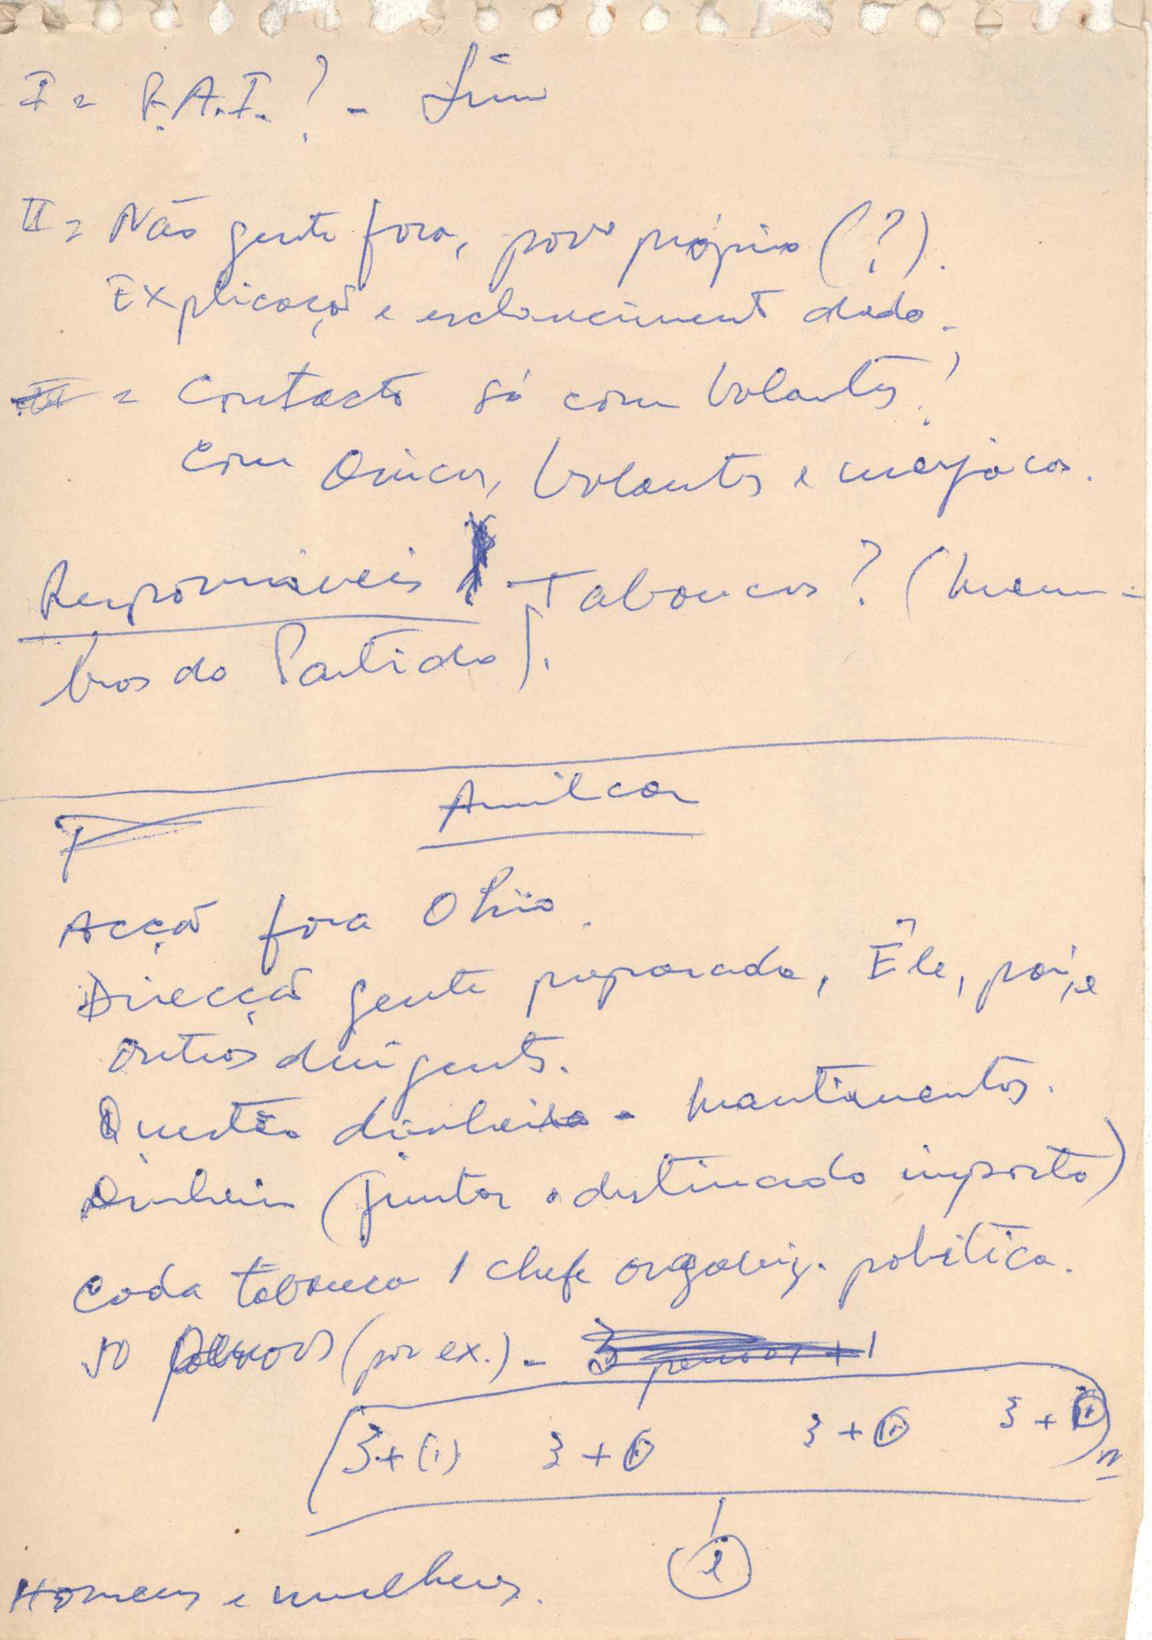 I = P.A.I. ? - Sim
II = Não gente fora, povo próprio (?).
Explicação e esclarecimento dado.
III = Contacto só com Volantes?
Com Oincas, Volantes e manjacos.
Responsáveis Tabancas? (mem-
bros do Partido).
Amilcar
Acção fora Ohio.
Direcção gente preparada, Êle, pai, e
outros dirigents.
Questão dinheiro - mantimentos.
Dinheiro (juntar o destinado imposto)
Cada tabanca 1 chefe organiz. politica.
50 pessoas (por ex.) - 3 pessoas + 1
(3+(1) 3+(1) 3+(1) 3+(1))n
1
Homens e mulheres.